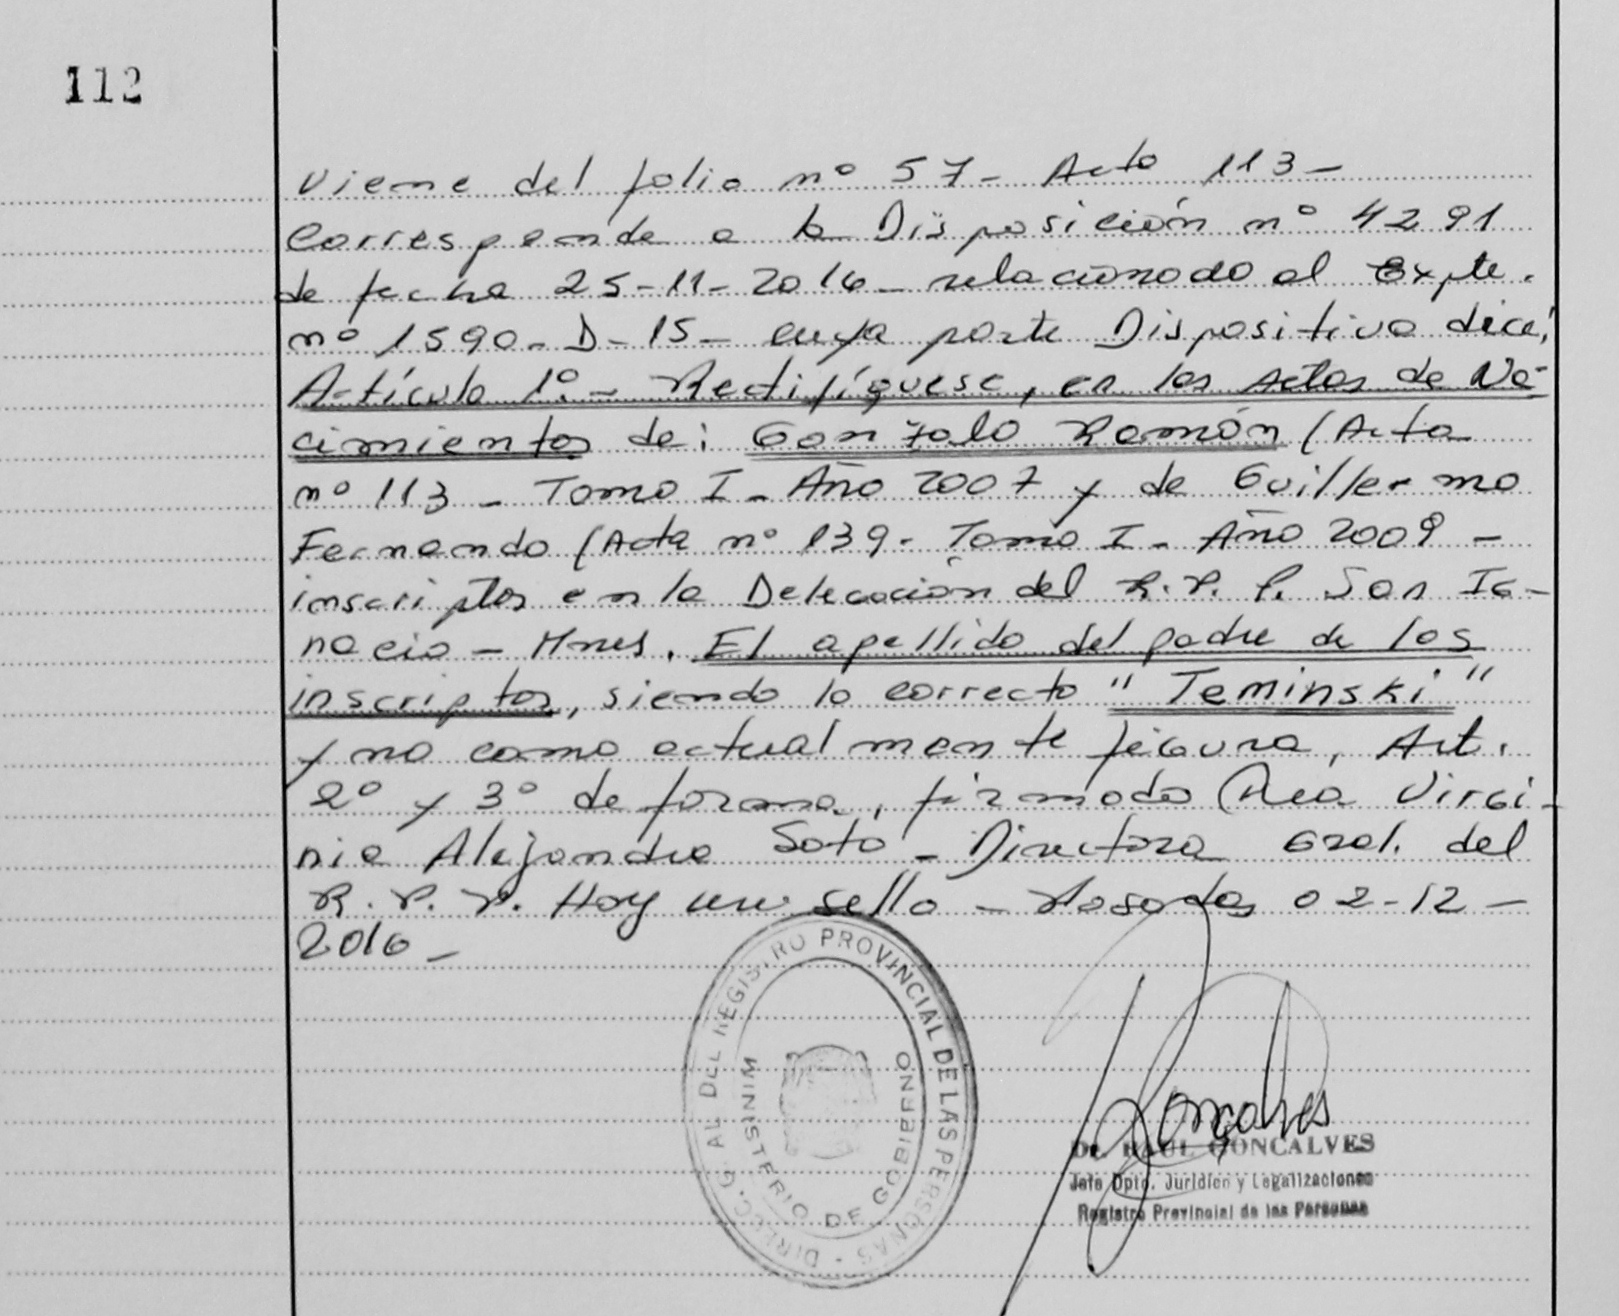 112
Viene del folio nº 57 - Acta 113 -
Corresponde a la Disposición nº 4291
de fecha 25-11-2016 - relacionado al Expte.
nº 1590 - D - 15 - cuya parte Dispositiva dice:
Artículo 1º. - Rectifíquese, en las Actas de Na-
cimientos de: Gonzalo Ramón (Acta
nº 113 - Tomo I - Año 2007 y de Guillermo
Fernando (Acta nº 139 - Tomo I - Año 2009 -
inscriptos en la Delegación del R.P.P. San Ig-
nacio - Mnes. El apellido del padre de los
inscriptos, siendo lo correcto "Teminski"
y no como actualmente figura, Art.
2º y 3º de forma, firmado Virgi-
nia Alejandra Soto - Directora Gral. del
R.P.P. Hay un sello - Posadas 02-12-
2016 -
DIRECC. G. AL DEL REGISTRO PROVINCIAL DE LAS PERSONAS -
MINISTERIO DE GOBIERNO
Goncalves
Dr. RAUL GONCALVES
Jefe Dpto. Jurídico y Legalizaciones
Registro Provincial de las Personas